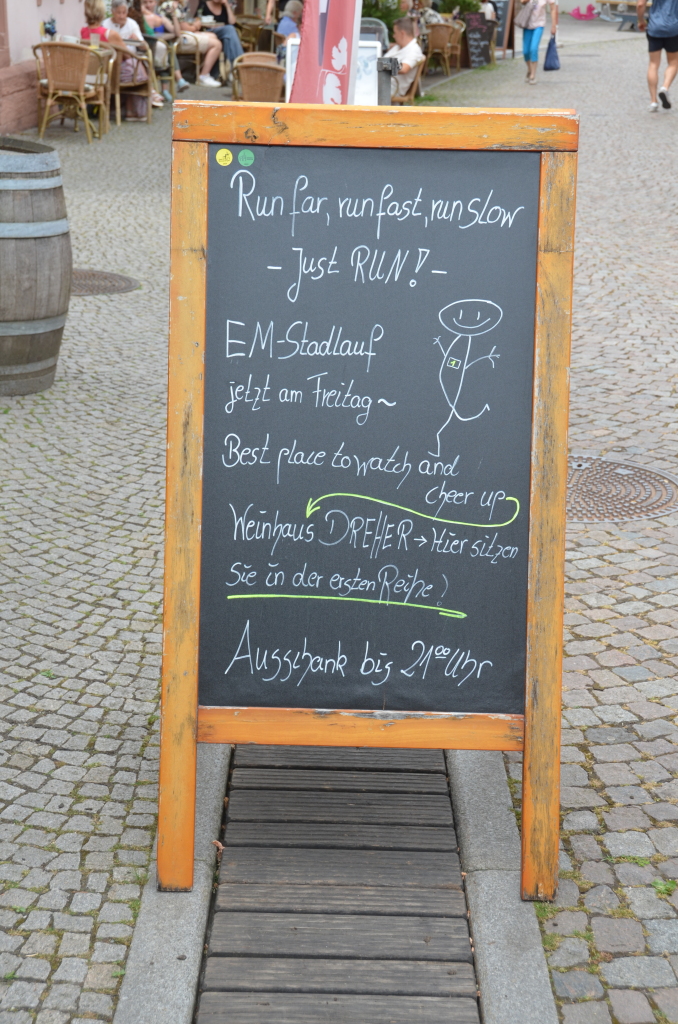 Run far, run fast, run slow
- Just RUN! -
EM-Stadlauf
jetzt am Freitag ~
Best place to watch and
cheer up
Weinhaus DREHER → Hier sitzen
Sie in der ersten Reihe!
Ausschank bis 21⁰⁰ Uhr